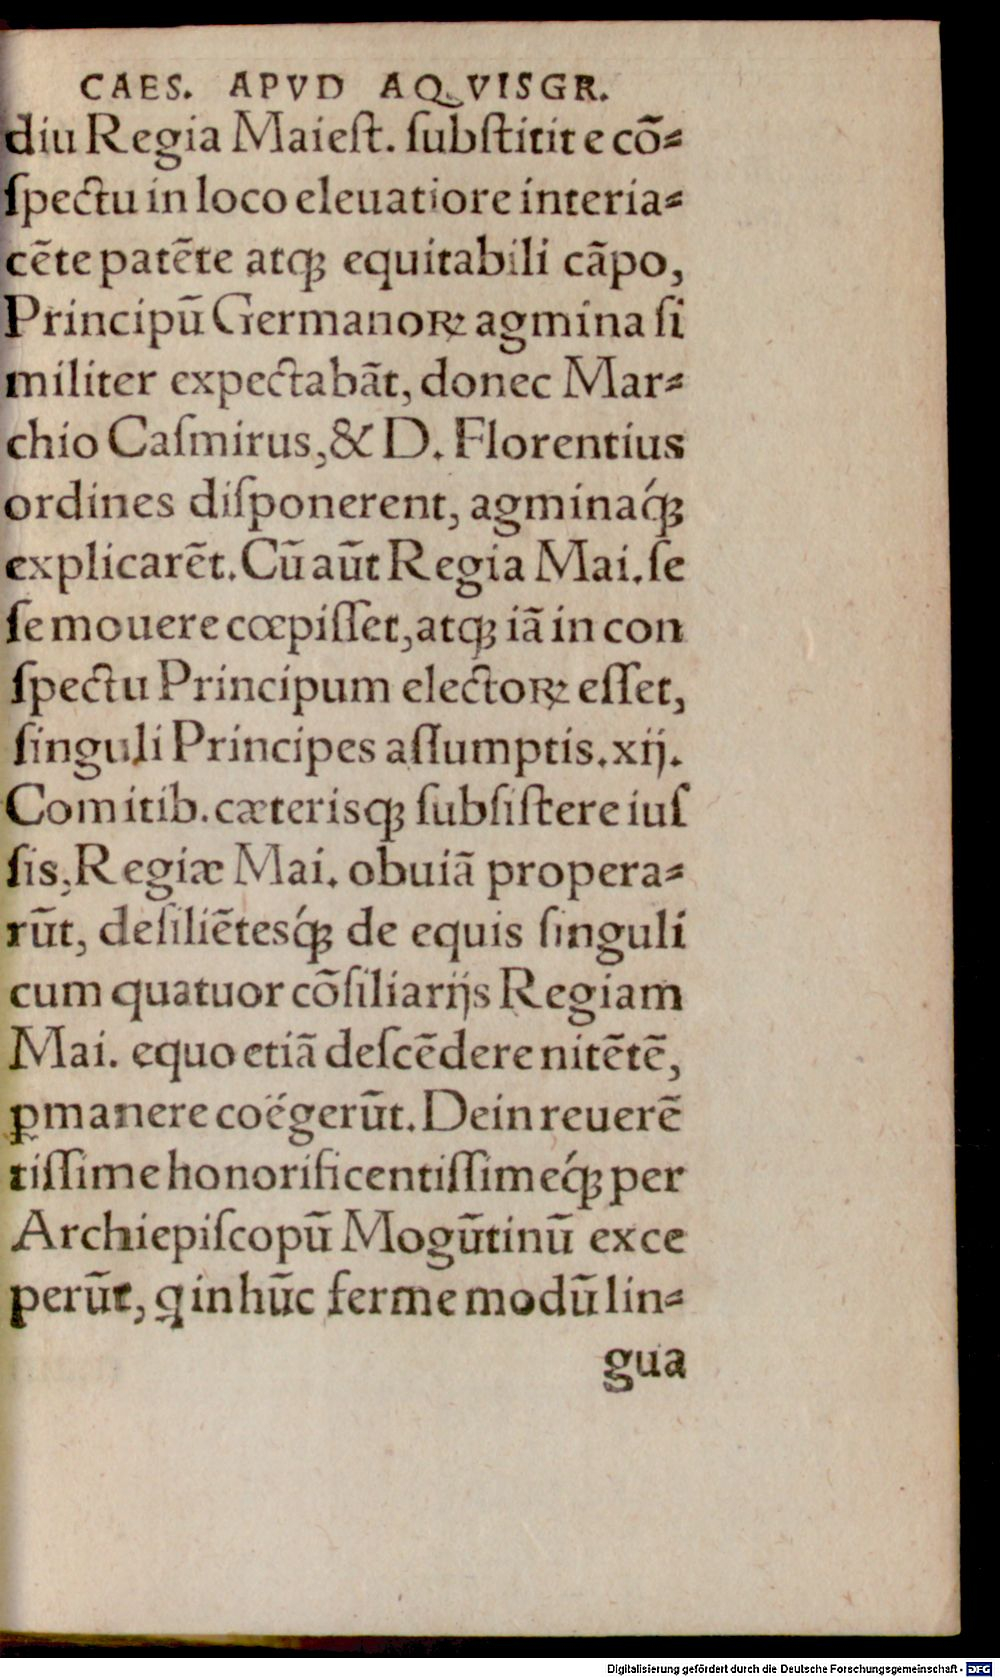 CAES. APVD AQVISGR.
diu Regia Maieſt. ſubſtitit e cō⸗
ſpectu in loco eleuatiore interia⸗
cēte patēte atqꝫ equitabili cāpo,
Principū Germanoꝝ agmina ſi
militer expectabāt, donec Mar⸗
chio Caſmirus, & D. Florentius
ordines diſponerent, agminaq́ꝫ
explicarēt. Cū aūt Regia Mai. ſe
ſe mouere cœpiſſet, atqꝫ iā in con
ſpectu Principum electoꝝ eſſet,
ſinguli Principes aſſumptis. xij.
Comitib. cæterisqꝫ ſubſiſtere iuſ
ſis, Regiæ Mai. obuiā propera⸗
rūt, deſiliētesq́ꝫ de equis ſinguli
cum quatuor cōſiliarijs Regiam
Mai. equo etiā deſcēdere nitētē,
ꝑmanere coëgerūt. Dein reuerē
tiſſime honorificentiſſimeq́ꝫ per
Archiepiſcopū Mogūtinū exce
perūt, q in hūc ferme modū lin⸗
gua
Digitalisierung gefördert durch die Deutsche Forschungsgemeinschaft - DFG